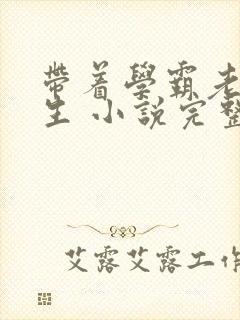 带着学霸老
生 小说完整
艾露艾露工作